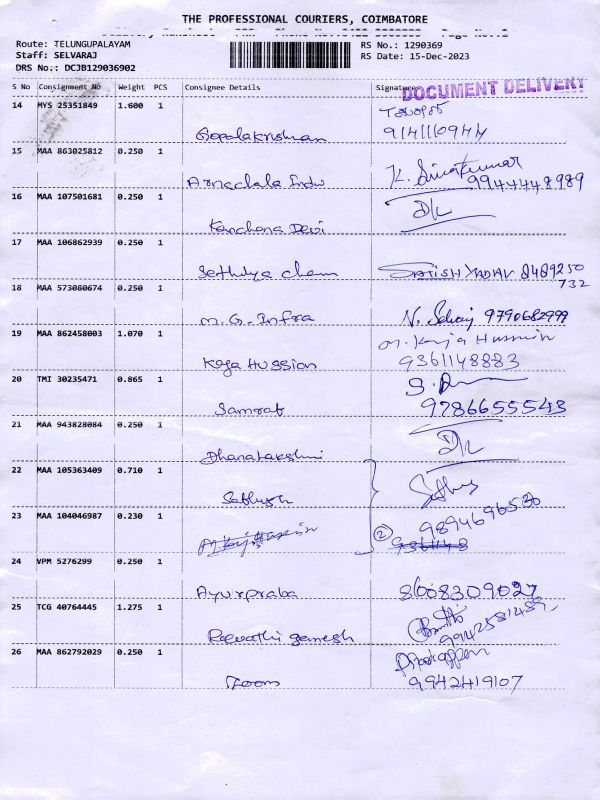 THE PROFESSIONAL COURIERS, COIMBATORE
Route: TELUNGUPALAYAM
Staff: SELVARAJ
DRS No.: DCJB129036902
RS No.: 1290369
RS Date: 15-Dec-2023
S No Consignment No Weight PCS Consignee Details Signature
DOCUMENT DELIVERY
14 MYS 25351849 1.600 1
Gopalakrishnan
15 MAA 863025812 0.250 1
Arnachala Indu K. Sivakumar
9944448989
16 MAA 107501681 0.250 1
Kanchana Devi
17 MAA 106862939 0.250 1
Sathya Cham SATISH YADAV 8489250
732
18 MAA 573080674 0.250 1
M.G. Infra N. Selvaj 9790682999
19 MAA 862458003 1.070 1
Koja Hussion 9361148883
20 TMI 30235471 0.865 1
Samrat 9786655543
21 MAA 943828084 0.250 1
Dhanalakshmi
22 MAA 105363409 0.710 1
Sathysh
23 MAA 104046987 0.230 1
2 9894696530
24 VPM 5276299 0.250 1
Ayurpraba 8608309027
25 TCG 40764445 1.275 1
Revathi gamesh
26 MAA 862792029 0.250 1
9942419107